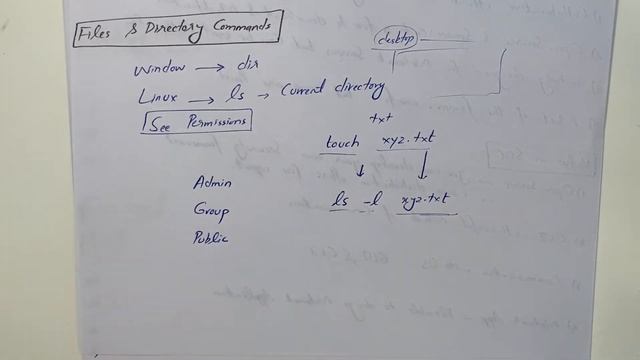 Files & Directory Commands
desktop
Window → dir
Linux → ls → Current directory
See Permissions
txt
touch xyz.txt
Admin
ls -l xyz.txt
Group
Public